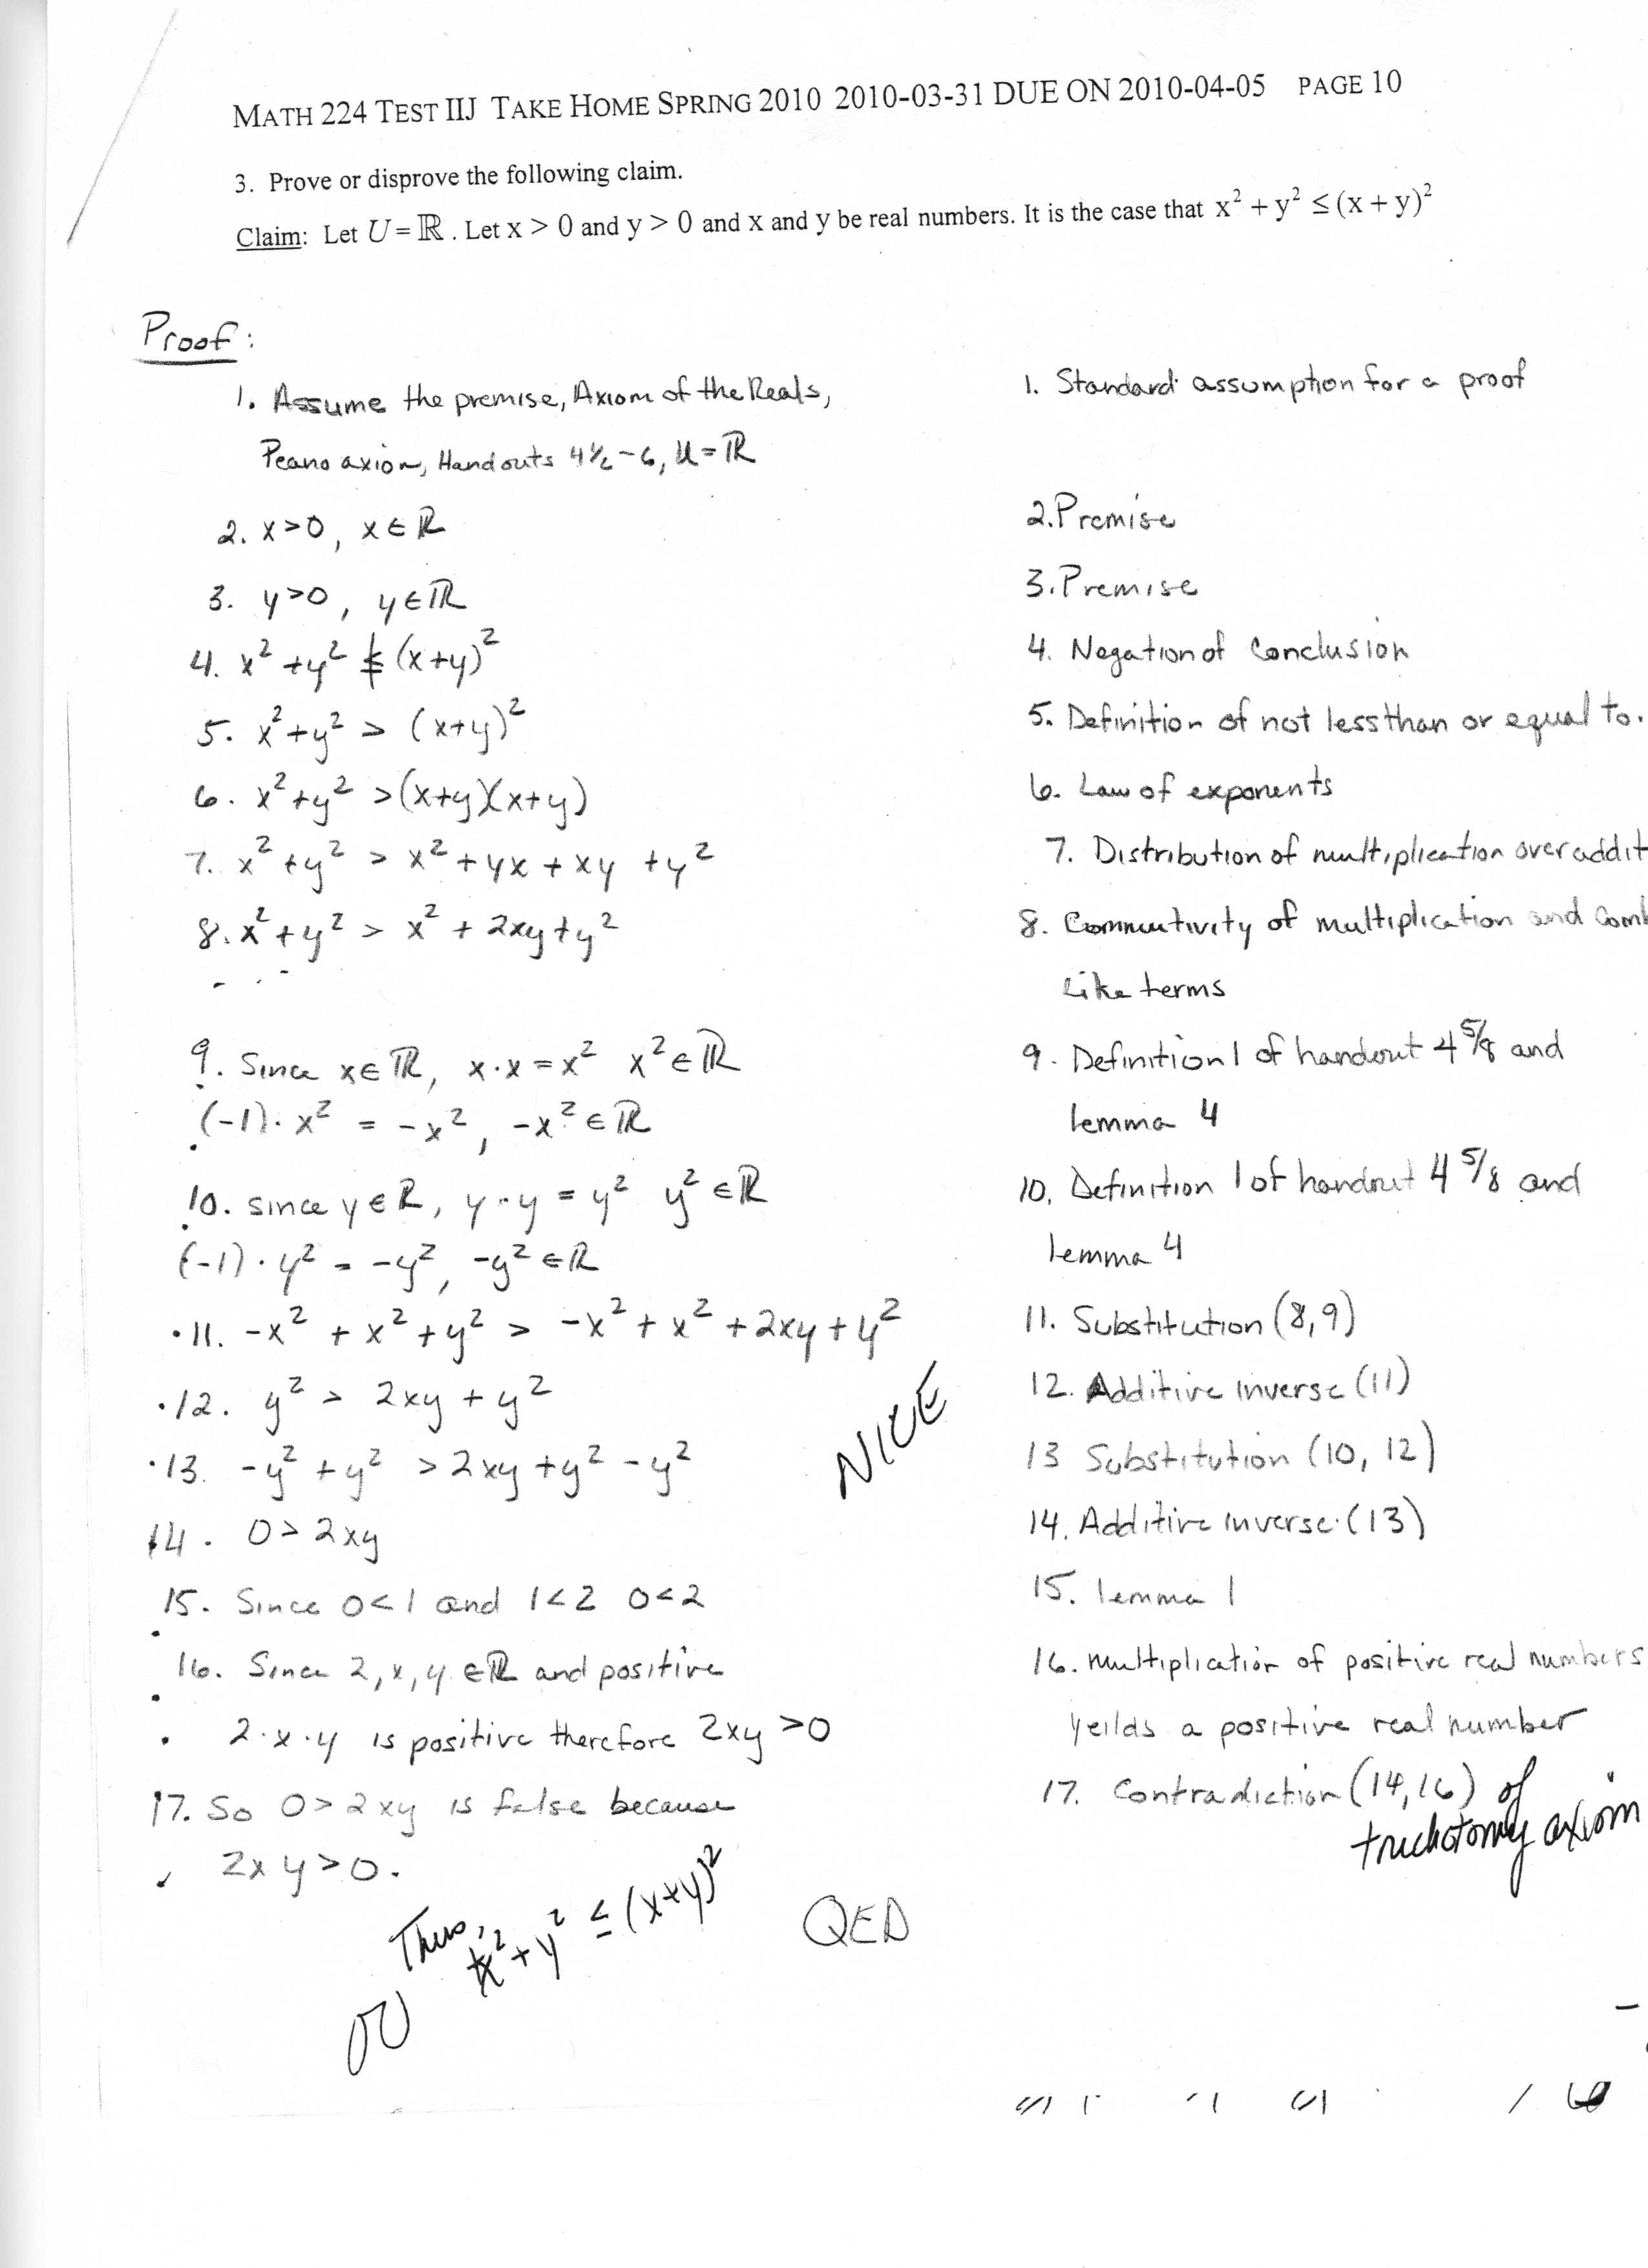 MATH 224 TEST IIJ TAKE HOME SPRING 2010 2010-03-31 DUE ON 2010-04-05 PAGE 10
3. Prove or disprove the following claim.
Claim: Let U = ℝ. Let x > 0 and y > 0 and x and y be real numbers. It is the case that x² + y² ≤ (x + y)²
Proof:
1. Assume the premise, Axiom of the Reals, 1. Standard assumption for a proof
Peano axiom, Handouts 4½-6, U = ℝ
2. x>0, x∈ℝ 2. Premise
3. y>0, y∈ℝ 3. Premise
4. x² + y² ≰ (x+y)² 4. Negation of Conclusion
5. x² + y² > (x+y)² 5. Definition of not less than or equal to.
6. x² + y² > (x+y)(x+y) 6. Law of exponents
7. x² + y² > x² + yx + xy + y² 7. Distribution of multiplication over addit
8. x² + y² > x² + 2xy + y² 8. Commutivity of multiplication and Comb
Like terms
9. Since x∈ℝ, x·x = x² x²∈ℝ 9. Definition 1 of handout 4 5/8 and
(-1)·x² = -x², -x²∈ℝ lemma 4
10. since y∈ℝ, y·y = y² y²∈ℝ 10. Definition 1 of handout 4 5/8 and
(-1)·y² = -y², -y²∈ℝ lemma 4
11. -x² + x² + y² > -x² + x² + 2xy + y² 11. Substitution (8,9)
12. y² > 2xy + y² 12. Additive inverse (11)
NICE
13. -y² + y² > 2xy + y² - y² 13 Substitution (10, 12)
14. 0 > 2xy 14. Additive inverse (13)
15. Since 0<1 and 1<2 0<2 15. lemma 1
16. Since 2,x,y ∈ℝ and positive 16. Multiplication of positive real numbers
2·x·y is positive therefore 2xy >0 yeilds a positive real number
17. So 0 > 2xy is false because 17. Contradiction (14,16) of
2xy>0. trichotomy axiom
Thus, x² + y² ≤ (x+y)²
QED